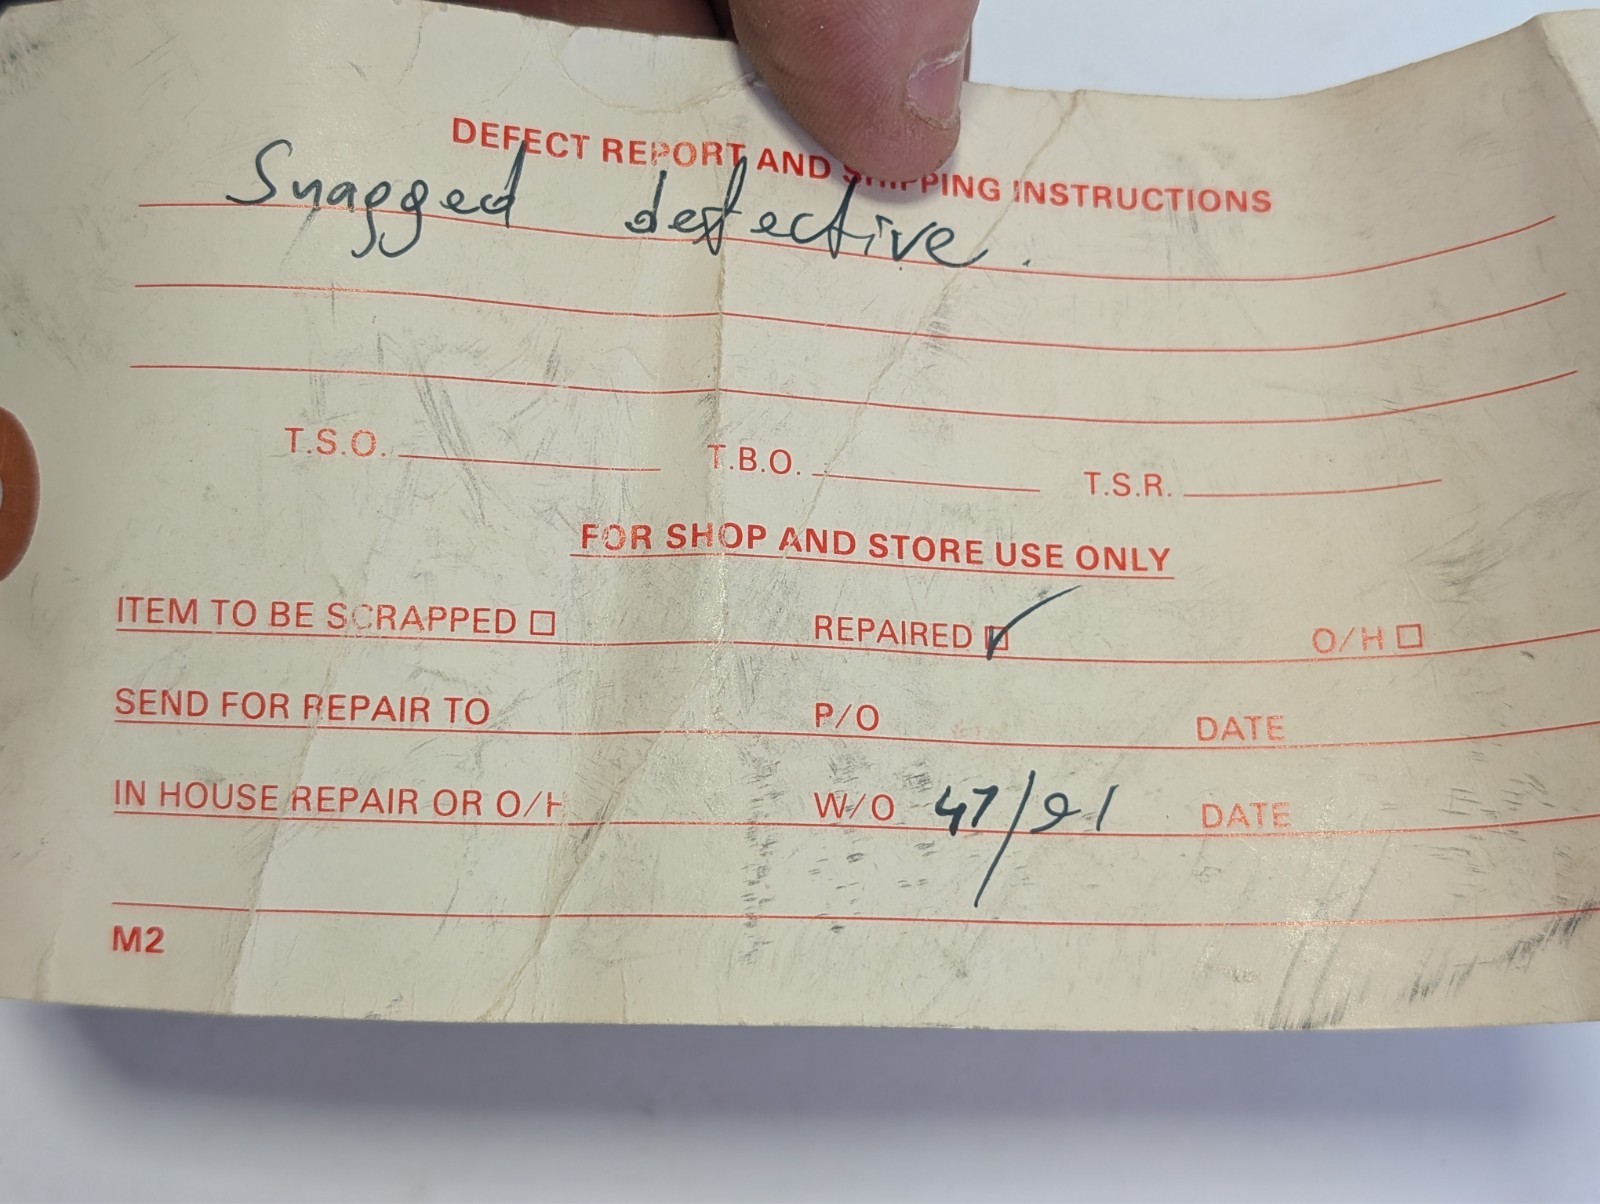 DEFECT REPORT AND SHIPPING INSTRUCTIONS
Snagged defective.
T.S.O. T.B.O. T.S.R.
FOR SHOP AND STORE USE ONLY
ITEM TO BE SCRAPPED ☐ REPAIRED ☑ O/H ☐
SEND FOR REPAIR TO P/O DATE
IN HOUSE REPAIR OR O/H W/O 47/91 DATE
M2